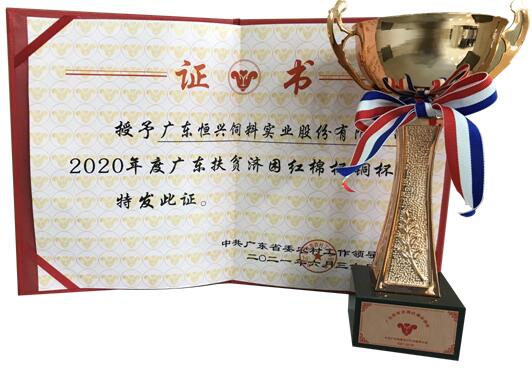 证书
授予广东恒兴饲料实业股份有
2020年度广东扶贫济困红棉杯铜杯
特发此证。
中共广东省委农村工作领导
二〇二一年六月三